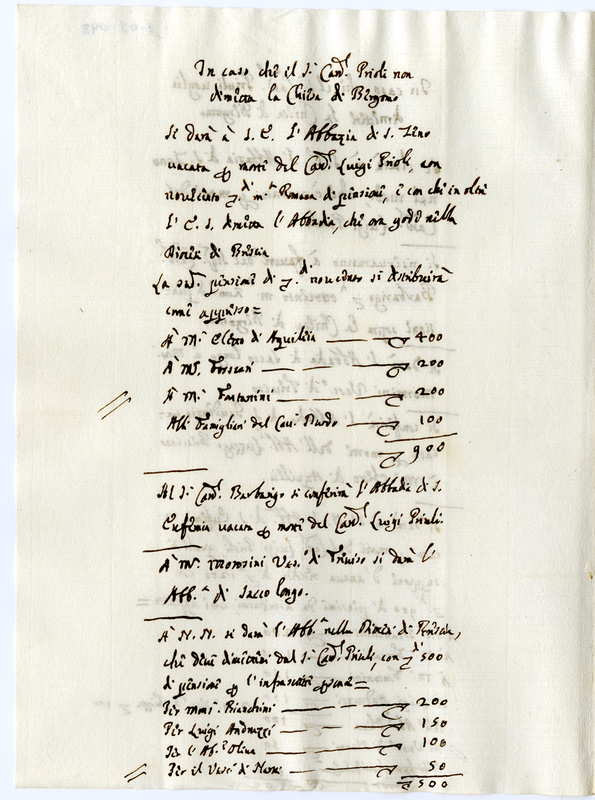 In caso che il S.r Card.l Prioli non
dimetta la Chiesa di Bergomo
Si darà à S. E. l'Abbazia di S. Zeno
vacata p morte del Card.l Luigi Prioli, con
novecento di m.ta Romana di pensioni, e con che in oltre
l'E. S. dimetta l'Abbadia, che ora gode nella
Diocesi di Brescia
La sud.a pensione di novecento si distribuirà
come appresso =
A M.r Eletto di Aquileia 400
A M.r Foscari 200
A M.r Fontanini 200
Alli Famigliari del Card. 100
900
Al S.r Card.l Barbarigo si conferirà l'Abbadia di S.
Eufemia vacata p morte del Card.l Luigi Priuli.
A M.r Morosini Ves.o di Treviso si darà l'
Abb.a di Sacco longo.
A N. N. si darà l'Abb.a nella Diocesi di Brescia,
che deve dimettersi dal S.r Card.l Priuli, con 500
di pensione p l'infrascritte persone =
Per Mons.r Bianchini 200
Per Luigi Andruzzi 150
Per l'Ab.e Oliva 100
Per il Vesc.o di 50
500